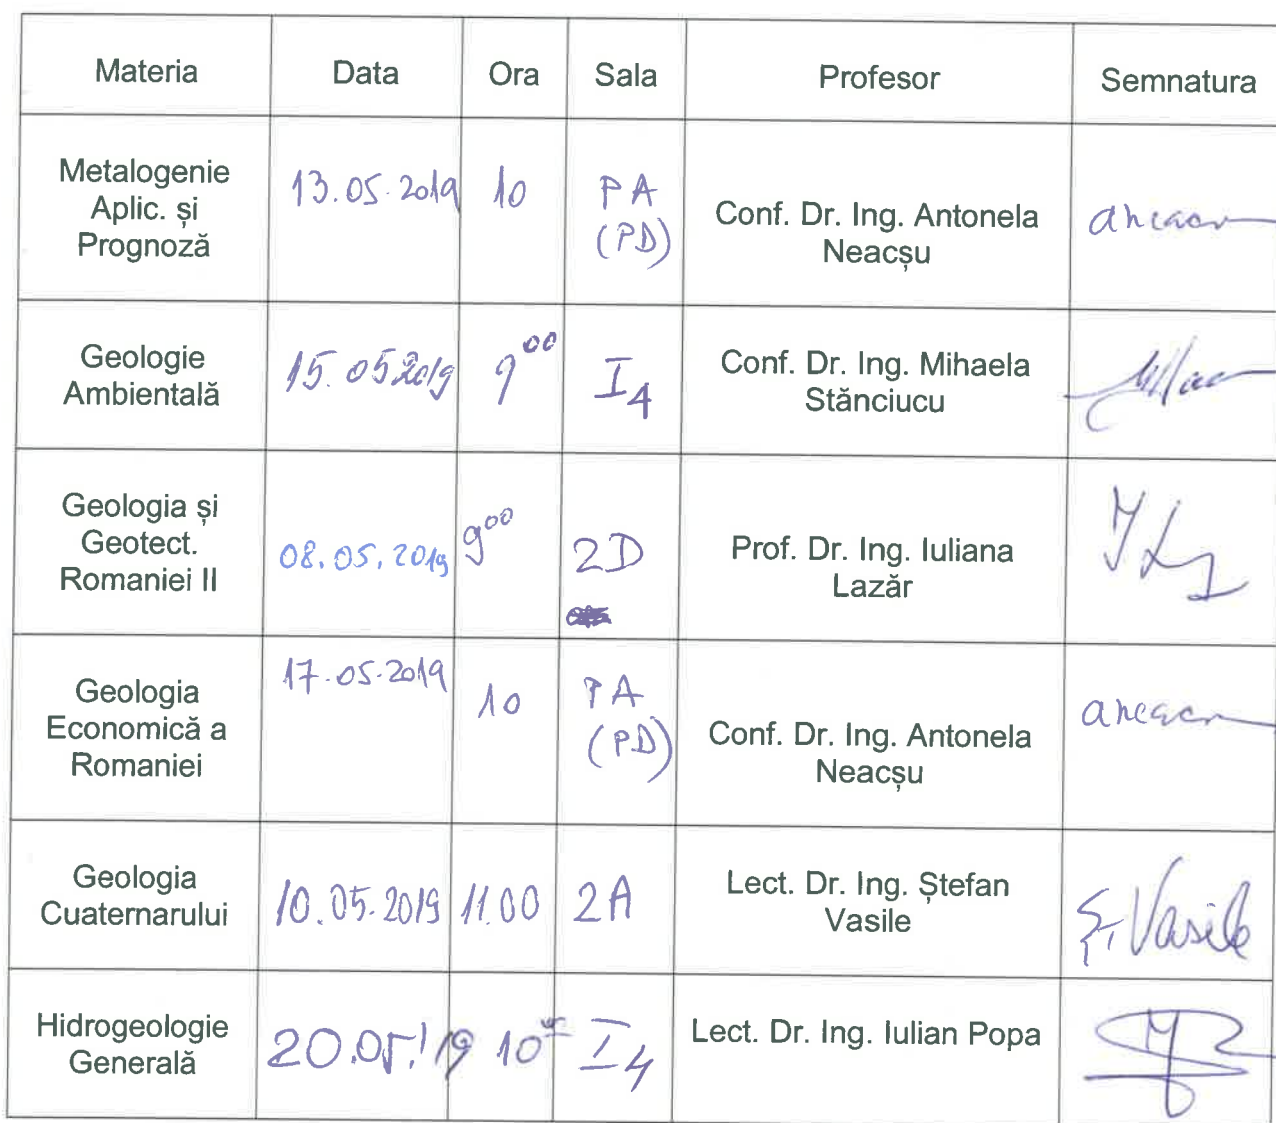 Materia Data Ora Sala Profesor Semnatura
Metalogenie
Aplic. și
Prognoză
13.05.2019 10 PA
(PD)
Conf. Dr. Ing. Antonela
Neacșu
Geologie
Ambientală
15.05.2019 9⁰⁰ I4
Conf. Dr. Ing. Mihaela
Stănciucu
Geologia și
Geotect.
Romaniei II
08.05.2019 9⁰⁰ 2D
Prof. Dr. Ing. Iuliana
Lazăr
Geologia
Economică a
Romaniei
17.05.2019 10 PA
(PD)
Conf. Dr. Ing. Antonela
Neacșu
Geologia
Cuaternarului
10.05.2019 11.00 2A
Lect. Dr. Ing. Ștefan
Vasile
Șt. Vasile
Hidrogeologie
Generală
20.05.'19 10 I4
Lect. Dr. Ing. Iulian Popa